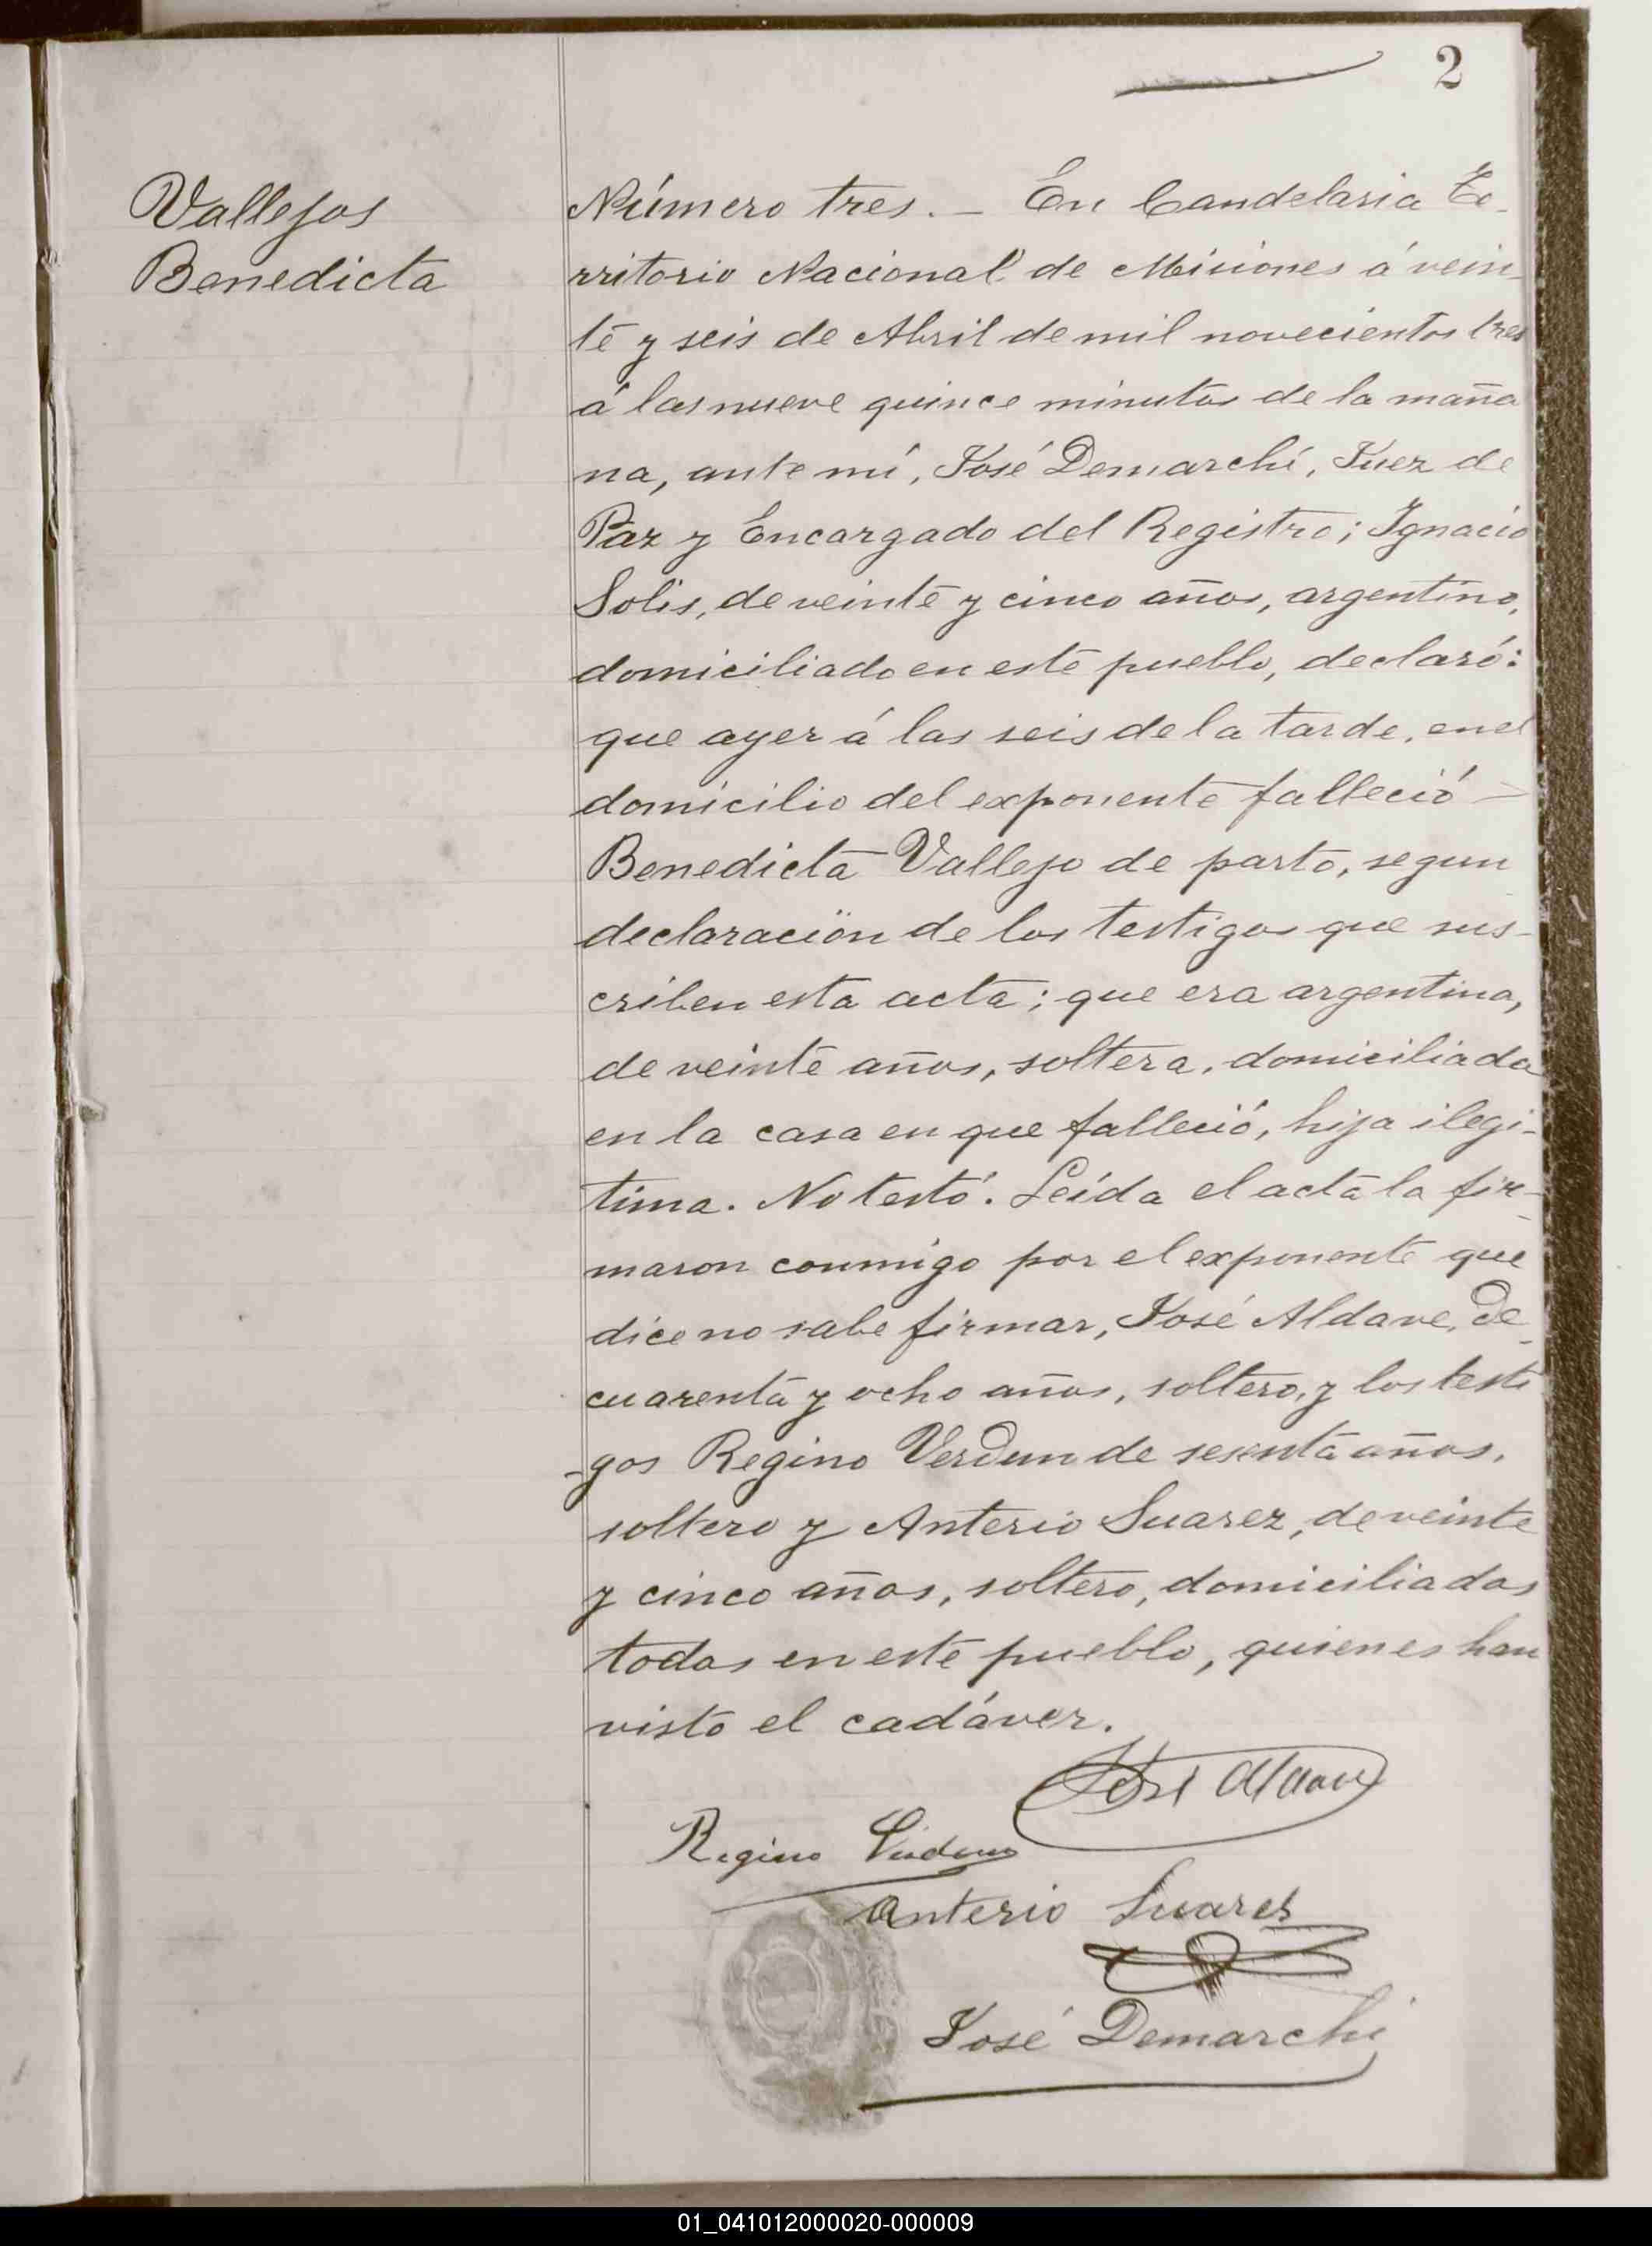 2
Vallejos
Benedicta
Número tres. — En Candelaria Te-
rritorio Nacional de Misiones á vein-
te y seis de Abril de mil novecientos tres
á las nueve quince minutos de la maña
na, ante mí, José Demarchi, Juez de
Paz y Encargado del Registro; Ignacio
Solis, de veinte y cinco años, argentino,
domiciliado en este pueblo, declaró:
que ayer á las seis de la tarde, en el
domicilio del exponente falleció —
Benedicta Vallejo de parto, segun
declaración de los testigos que sus-
criben esta acta; que era argentina,
de veinte años, soltera, domiciliada
en la casa en que falleció, hija ilegi-
tima. No testó. Leída el acta la fir-
maron conmigo por el exponente que
dice no sabe firmar, José Aldave, de
cuarenta y ocho años, soltero, y los testi
-gos Regino Verdun de sesenta años,
soltero y Anterio Suarez, de veinte
y cinco años, soltero, domiciliados
todos en este pueblo, quienes han
visto el cadáver.
José Aldave
Regino Verdun
Anterio Suares
José Demarchi
01_041012000020-000009